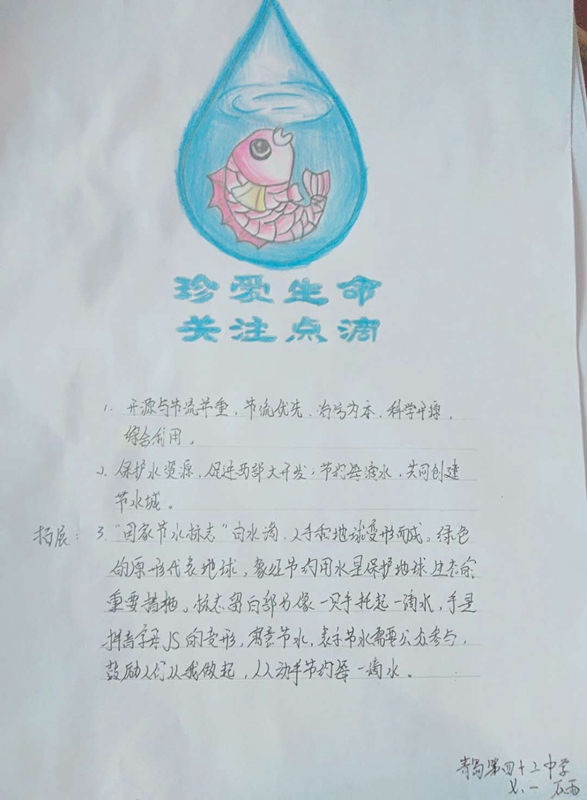 珍爱生命
关注点滴
1. 开源与节流并重，节流优先、治污为本、科学开源、
综合利用。
2. 保护水资源，促进西部大开发，节约每滴水，共同创建
节水城。
拓展： 3. “国家节水标志”由水滴、人手和地球变形而成。绿色
的圆形代表地球，象征节约用水是保护地球生态的
重要措施。标志留白部分像一只手托起一滴水，手是
拼音字母JS的变形，寓意节水，表示节水需要公众参与，
鼓励人们从我做起，人人动手节约每一滴水。
青岛第四十二中学
七.一